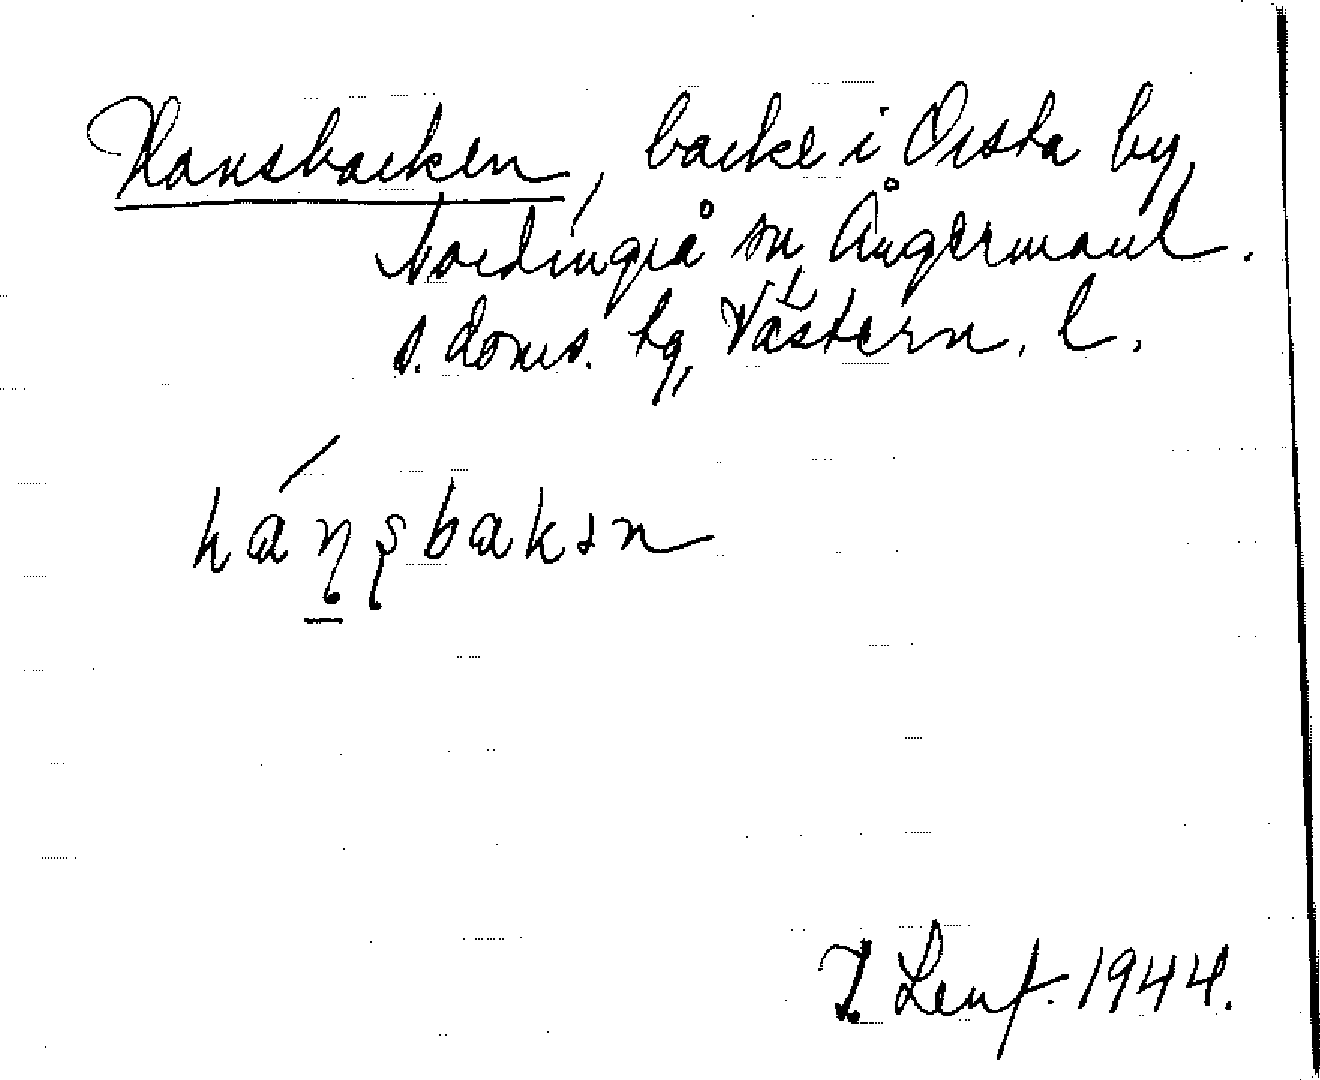 Hansbacken, backe i Orsta by,
Nordingrå sn, Ångermanl.
s. doms. tg, Västern. l.
hánsbakən
I. Lenf. 1944.